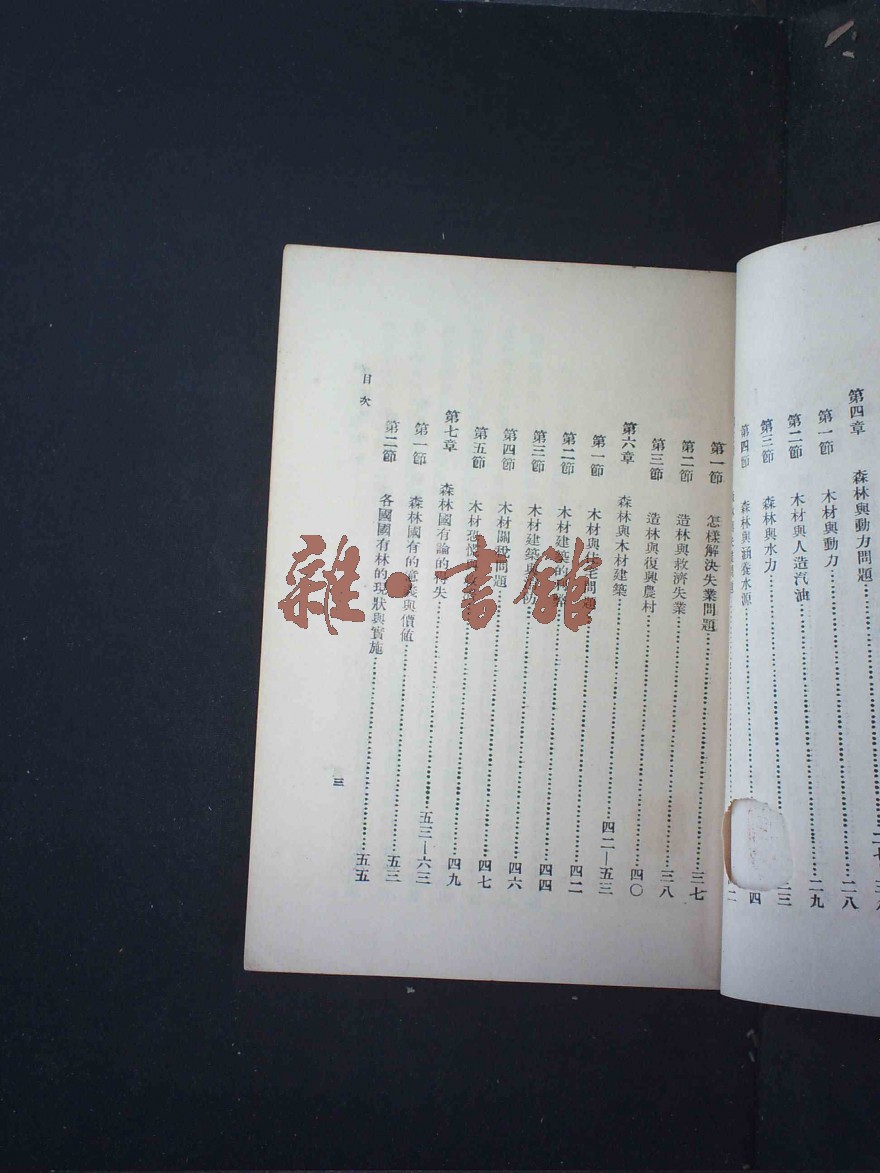 第四章 森林與動力問題
第一節 木材與動力 二八
第二節 木材與人造汽油 二九
第三節 森林與水力
第四節 森林與涵養水源
第一節 怎樣解決失業問題 三七
第二節 造林與救濟失業 三八
第三節 造林與復興農村 四〇
第六章 森林與木材建築 四二—五三
第一節 木材與住宅問題 四二
第二節 木材建築的 四四
第三節 木材建築與 四六
第四節 木材關稅問題 四七
第五節 木材恐慌 四九
第七章 森林國有論的得失 五三—六三
第一節 森林國有的意義與價值 五三
第二節 各國國有林的現狀與實施 五五
目次
三
雜·書館